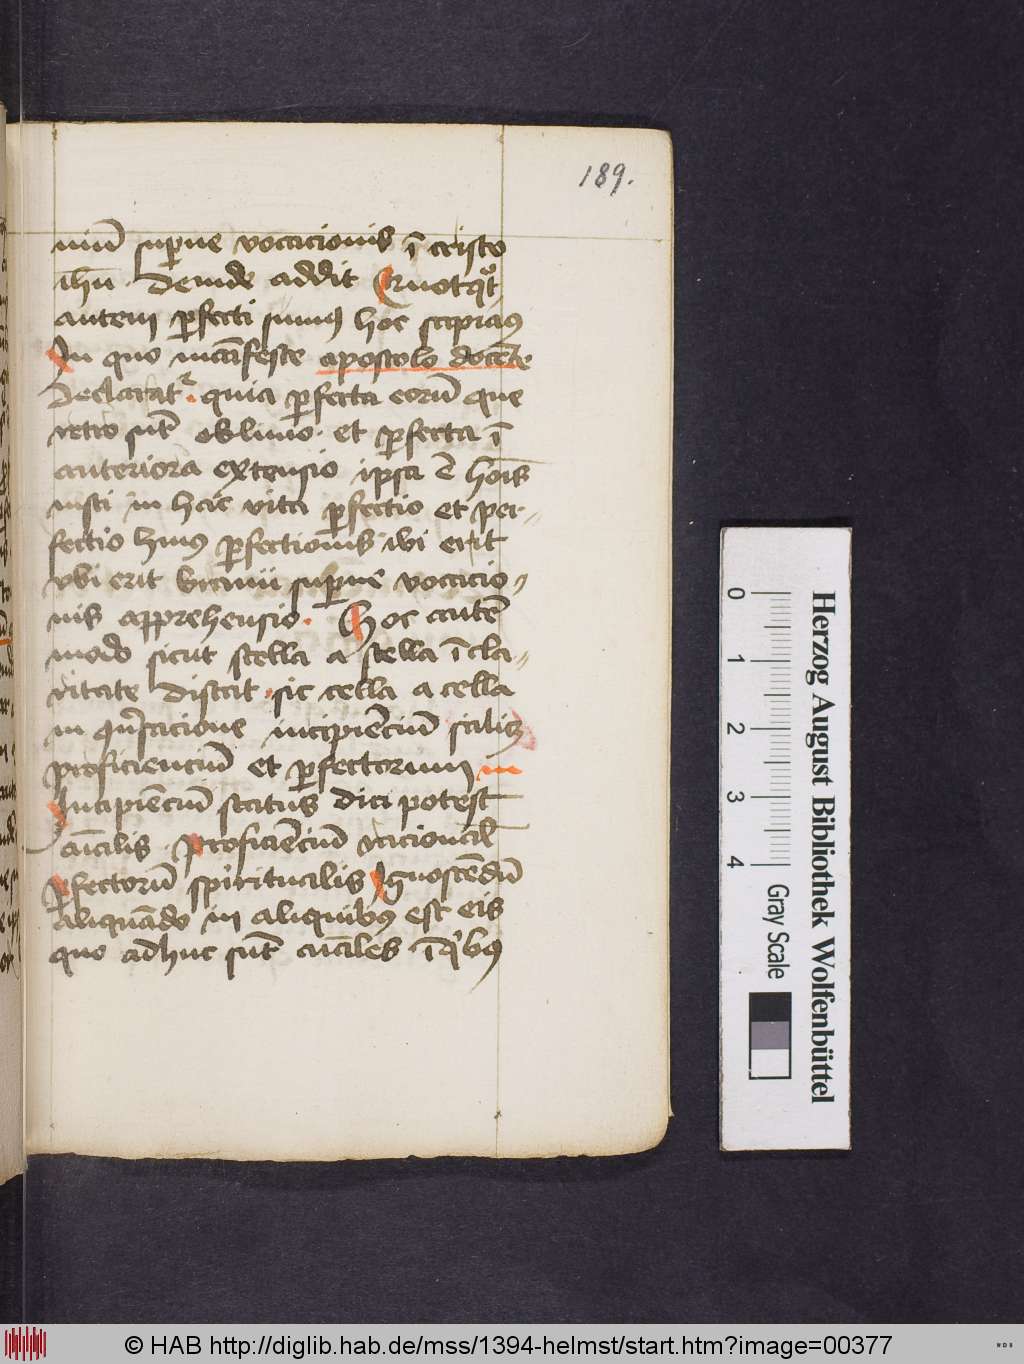 189.
niū suꝑne vocacionis ī cristo
ihū. Deinde addit Quotqͦt
autem ꝑfecti sumꝰ hoc sapiamꝰ
In quo manifeste apostolo docēte
declarat᷑. quia ꝑfecta eorū que
retro sūt oblivio. et ꝑfecta ī
anteriora extensio ipsa ē hoīs
iusti in hac vita ꝑfectio et per-
fectio huiꝰ ꝑfectionis ibi erit
vbi erit bravii suꝑne vocacio-
nis apprehensio. Hoc autē
modo sicut stella a stella ī cla-
ritate distat. sic cella a cella
in ꝯuersacione incipiēciū scilicꝫ
proficienciū et ꝑfectorum
Incipiēciū status dici potest
aīalis. Proficiēciū racional
ꝑfectorū spiritualis Ignoscēdū
aliquādo in aliquibꝰ est eis
quo adhuc sūt aīales ī qͥbꝰ
Herzog August Bibliothek Wolfenbüttel
0 1 2 3 4
Gray Scale
© HAB http://diglib.hab.de/mss/1394-helmst/start.htm?image=00377